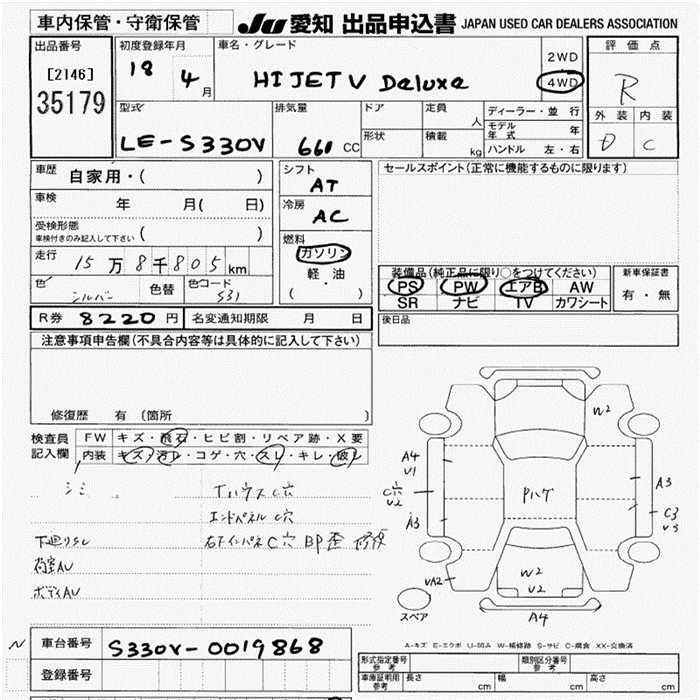 車内保管・守衛保管
JU 愛知 出品申込書 JAPAN USED CAR DEALERS ASSOCIATION
出品番号
[2146]
35179
初度登録年月
18 4月
車名・グレード
HIJET V Deluxe
2WD
4WD
評価点
R
外装 内装
D C
型式
LE-S330V
排気量
660 CC
ドア
形状
定員
人
積載
kg
ディーラー・並行
モデル年式 年
ハンドル 左・右
車歴
自家用・( )
車検
年 月( 日)
受検形態
車検付きのみ記入して下さい ( )
走行
15万8千805km
色 シルバー 色替 色コード S31
シフト
AT
冷房
AC
燃料
ガソリン
軽・油
( )
セールスポイント(正常に機能するものに限ります)
装備品(純正品に限り○をつけてください)
PS PW エアB AW
SR ナビ TV カワシート
新車保証書
有・無
R券 8220円 名変通知期限 月 日
後日品
注意事項申告欄(不具合内容等は具体的に記入して下さい)
修復歴 有 (箇所 )
検査員
記入欄
FW キズ・飛石・ヒビ割・リペア跡・X要
内装 キズ・汚レ・コゲ・穴・スレ・キレ・破レ
シミ
Tハウス C穴
エンドパネル C穴
下廻りSC 右下インパネC穴 BP歪 修復
荷室AU
ボディAU
W2
A4
U1
C穴
U2
A3
Pハゲ
A3
C3
U3
UA2
W2
U2
A4
スペア
A-キズ E-エクボ U-凹み W-補修跡 S-サビ C-腐食 XX-交換済
車台番号 S330V-0019868
登録番号
形式指定番号
参考
類別区分番号
参考
車庫証明用
参考
長さ cm 幅 cm 高さ cm